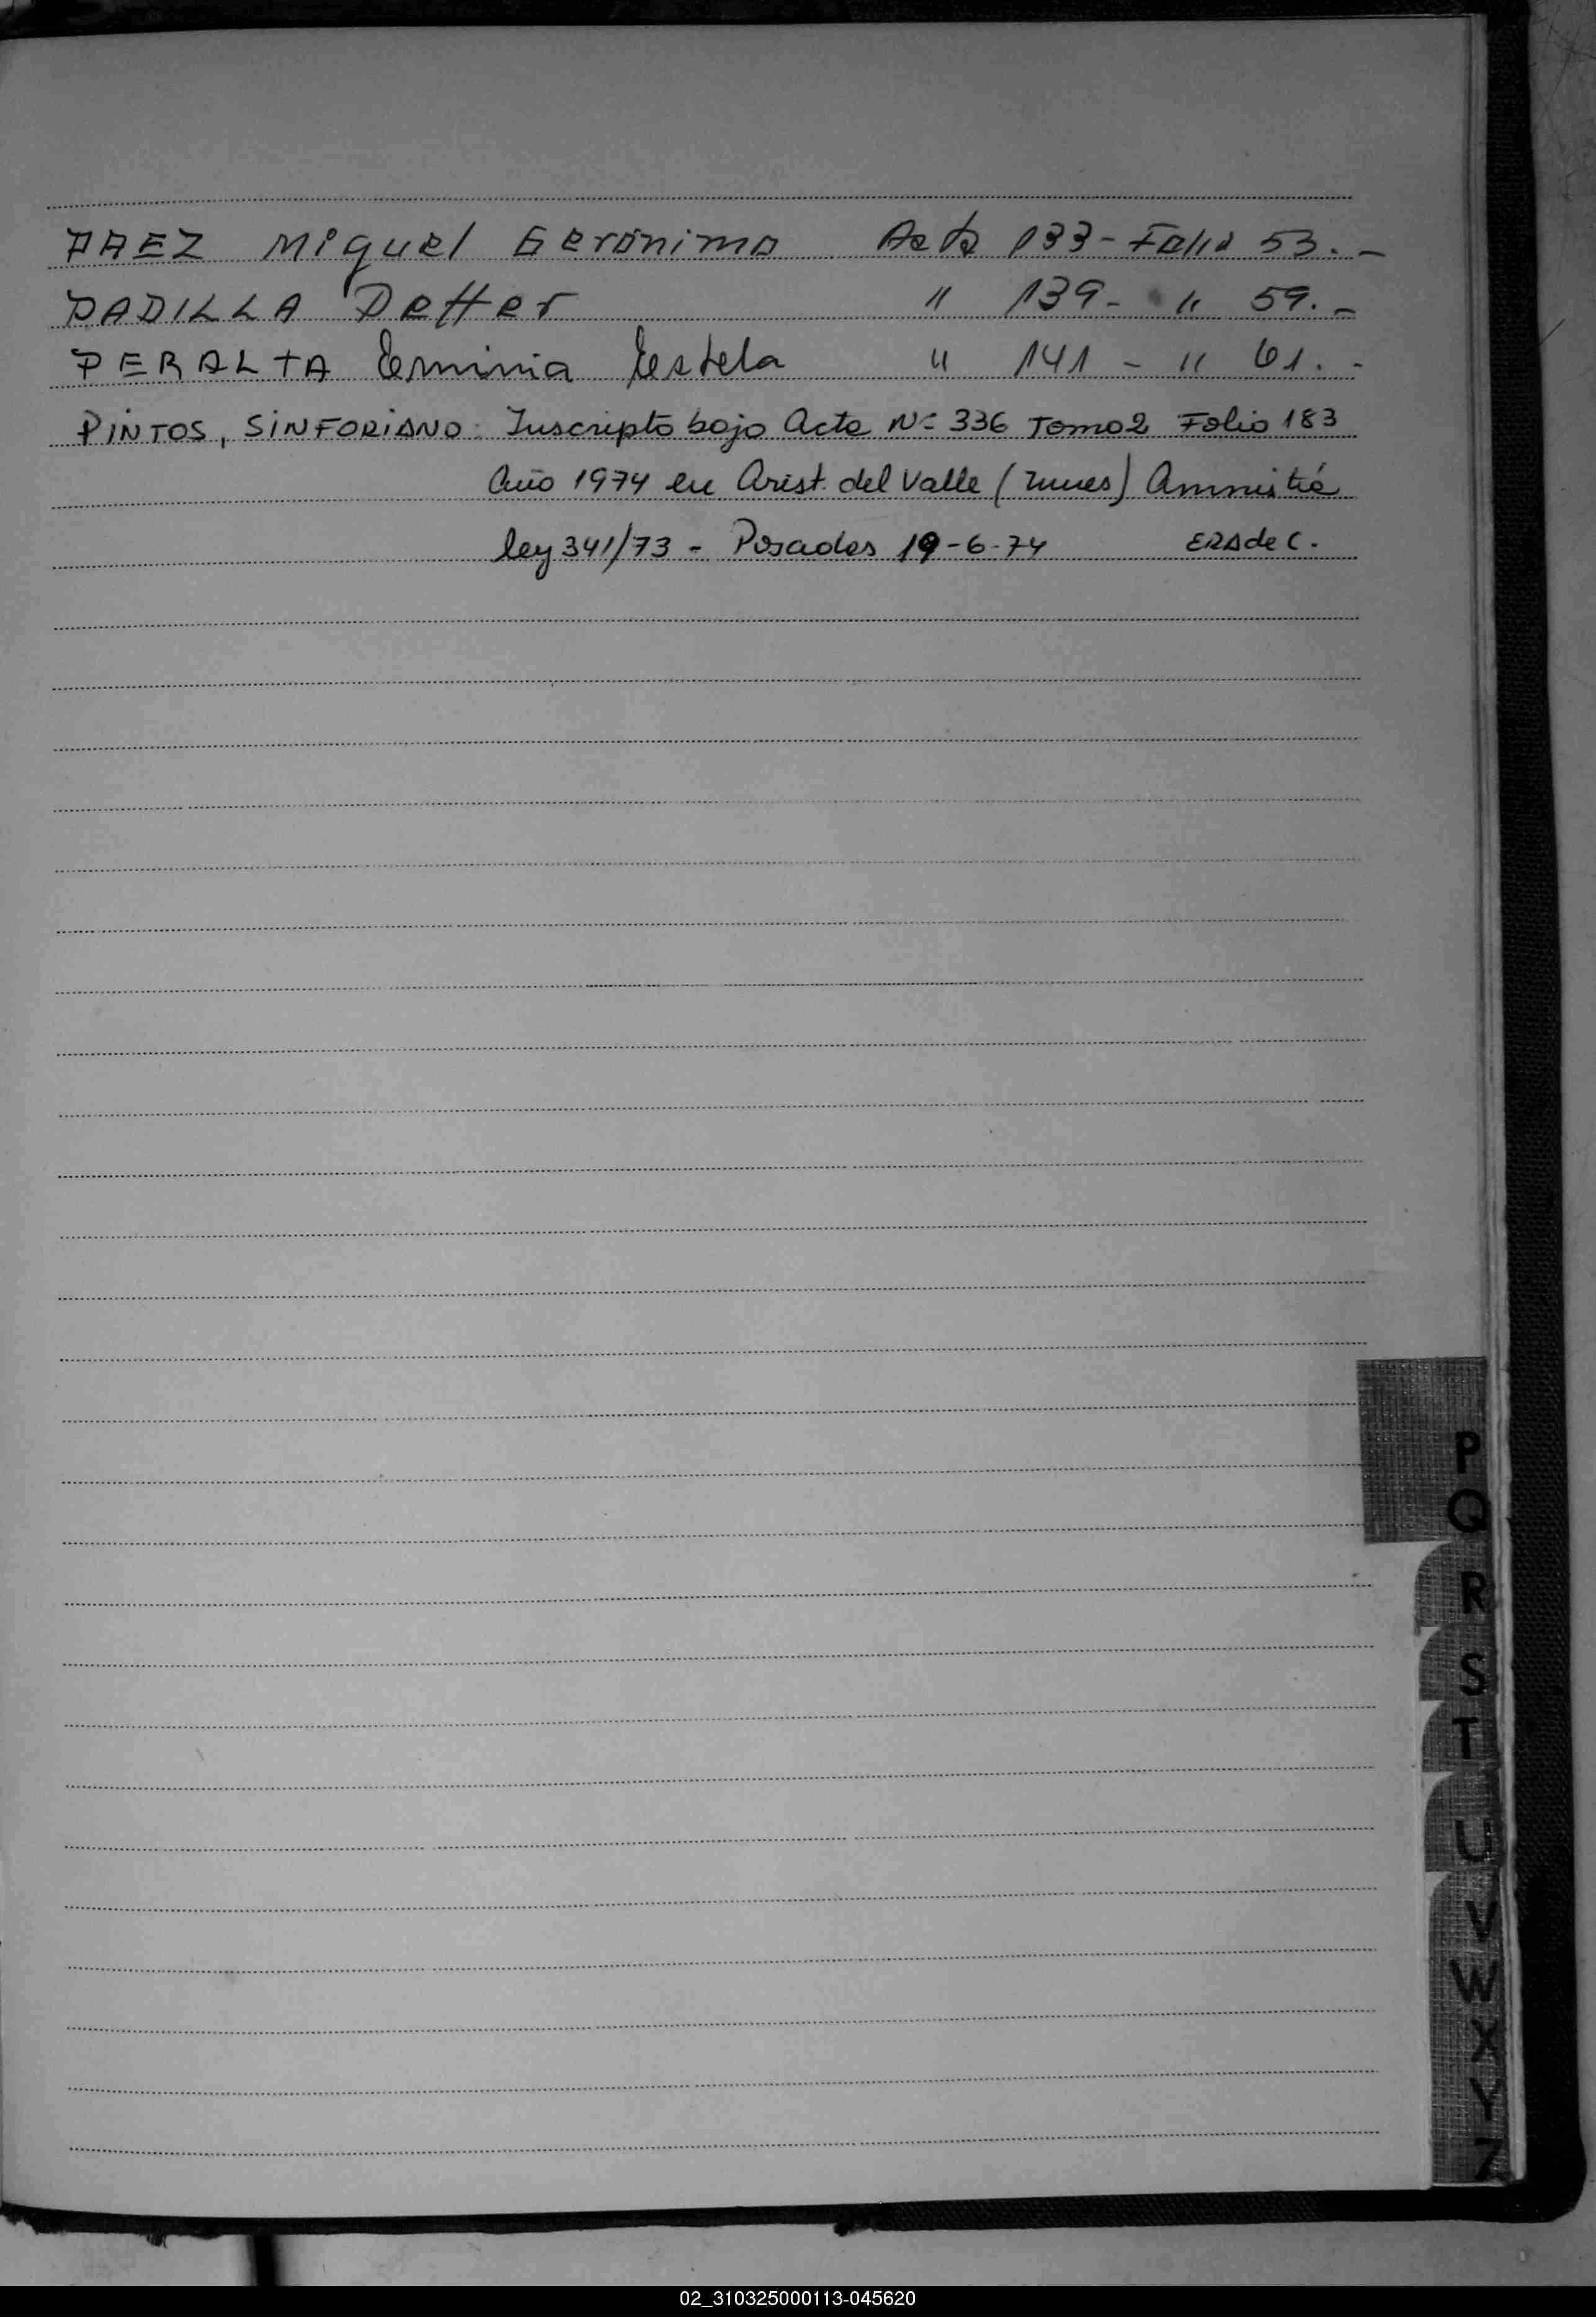 PAEZ Miguel Gerónimo Acta 133 - Folio 53. -
PADILLA Detter " 139 - " 59. -
PERALTA Erminia Estela " 141 - " 61. -
PINTOS, SINFORIANO: Inscripto bajo Acta Nº 336 Tomo 2 Folio 183
Año 1974 en Arist. del Valle ( ) Amnistía
ley 341/73 - Posadas 19-6-74 ERA de C.
P
Q
R
S
T
U
V
W
X
Y
Z
02_310325000113-045620